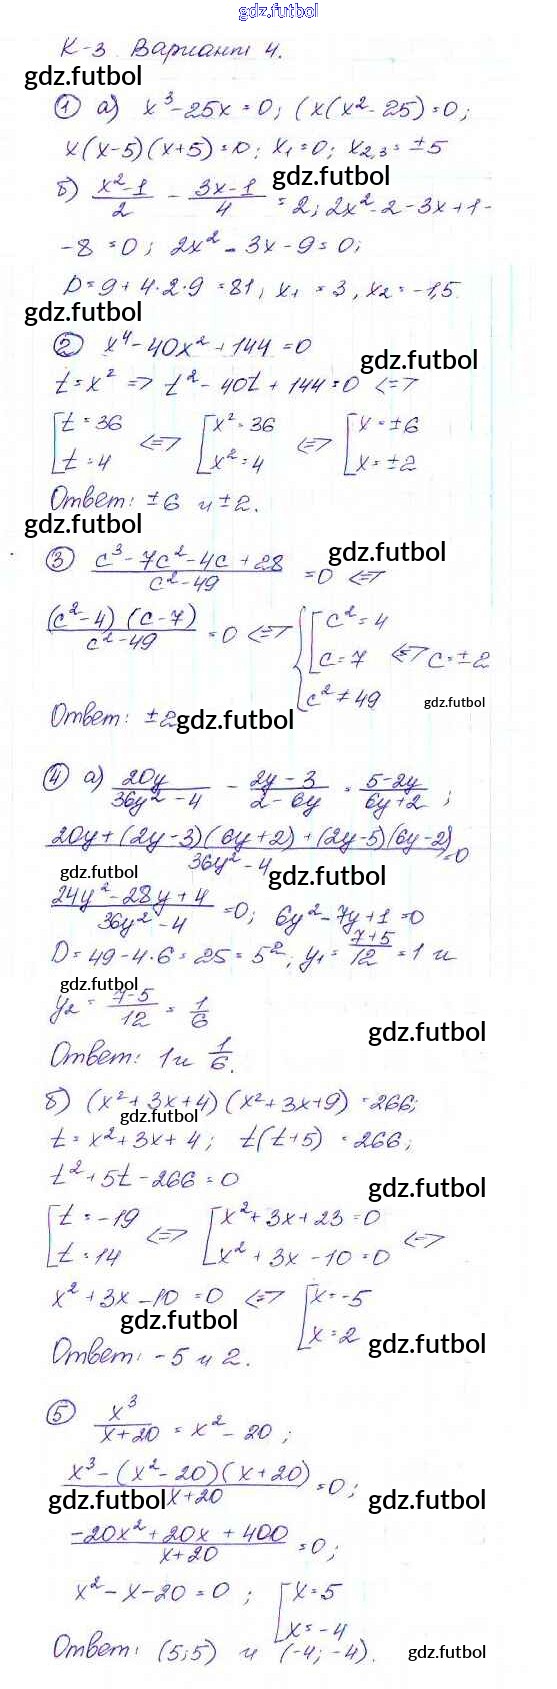 gdz.futbol
К-3 Вариант 4.
gdz.futbol
① а) x³-25x=0; (x(x²-25)=0;
x(x-5)(x+5)=0; x₁=0; x₂,₃=±5
gdz.futbol
б) (x²-1)/2 - (3x-1)/4 = 2; 2x²-2-3x+1-
-8=0; 2x²-3x-9=0;
D=9+4·2·9=81; x₁=3, x₂=-1,5
gdz.futbol
② x⁴-40x²+144=0
gdz.futbol
t=x² => t²-40t+144=0 <=>
[t=36 <=> [x²=36 <=> [x=±6
[t=4 [x²=4 [x=±2
Ответ: ±6 и ±2.
gdz.futbol
gdz.futbol
③ (c³-7c²-4c+28)/(c²-49) =0 <=>
(c²-4)(c-7)/(c²-49) =0 <=> { [c²=4
[c=7 <=> c=±2
c²≠49
gdz.futbol
Ответ: ±2
gdz.futbol
④ а) 20y/(36y²-4) - (2y-3)/(2-6y) = (5-2y)/(6y+2);
(20y+(2y-3)(6y+2)+(2y-5)(6y-2))/(36y²-4) =0
gdz.futbol
gdz.futbol
(24y²-28y+4)/(36y²-4) =0; 6y²-7y+1=0
D=49-4·6=25=5²; y₁=(7+5)/12=1 и
gdz.futbol
y₂=(7-5)/12=1/6
gdz.futbol
Ответ: 1 и 1/6.
б) (x²+3x+4)(x²+3x+9)=266;
gdz.futbol
t=x²+3x+4; t(t+5)=266;
t²+5t-266=0
gdz.futbol
[t=-19 <=> [x²+3x+23=0 <=>
[t=14 [x²+3x-10=0
x²+3x-10=0 <=> [x=-5
gdz.futbol
[x=2
gdz.futbol
Ответ: -5 и 2.
⑤ x³/(x+20) = x²-20;
(x³-(x²-20)(x+20))/(x+20) =0;
gdz.futbol
gdz.futbol
(-20x²+20x+400)/(x+20) =0;
x²-x-20=0; [x=5
[x=-4
Ответ: (5;5) и (-4;-4).
gdz.futbol